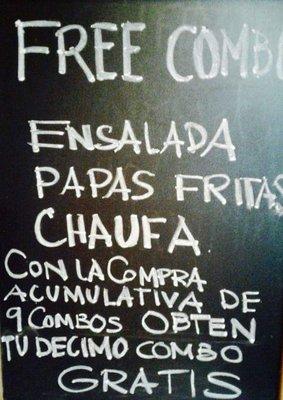 FREE COMBO
ENSALADA
PAPAS FRITAS
CHAUFA
CON LA COMPRA
ACUMULATIVA DE
9 COMBOS OBTEN
TU DECIMO COMBO
GRATIS